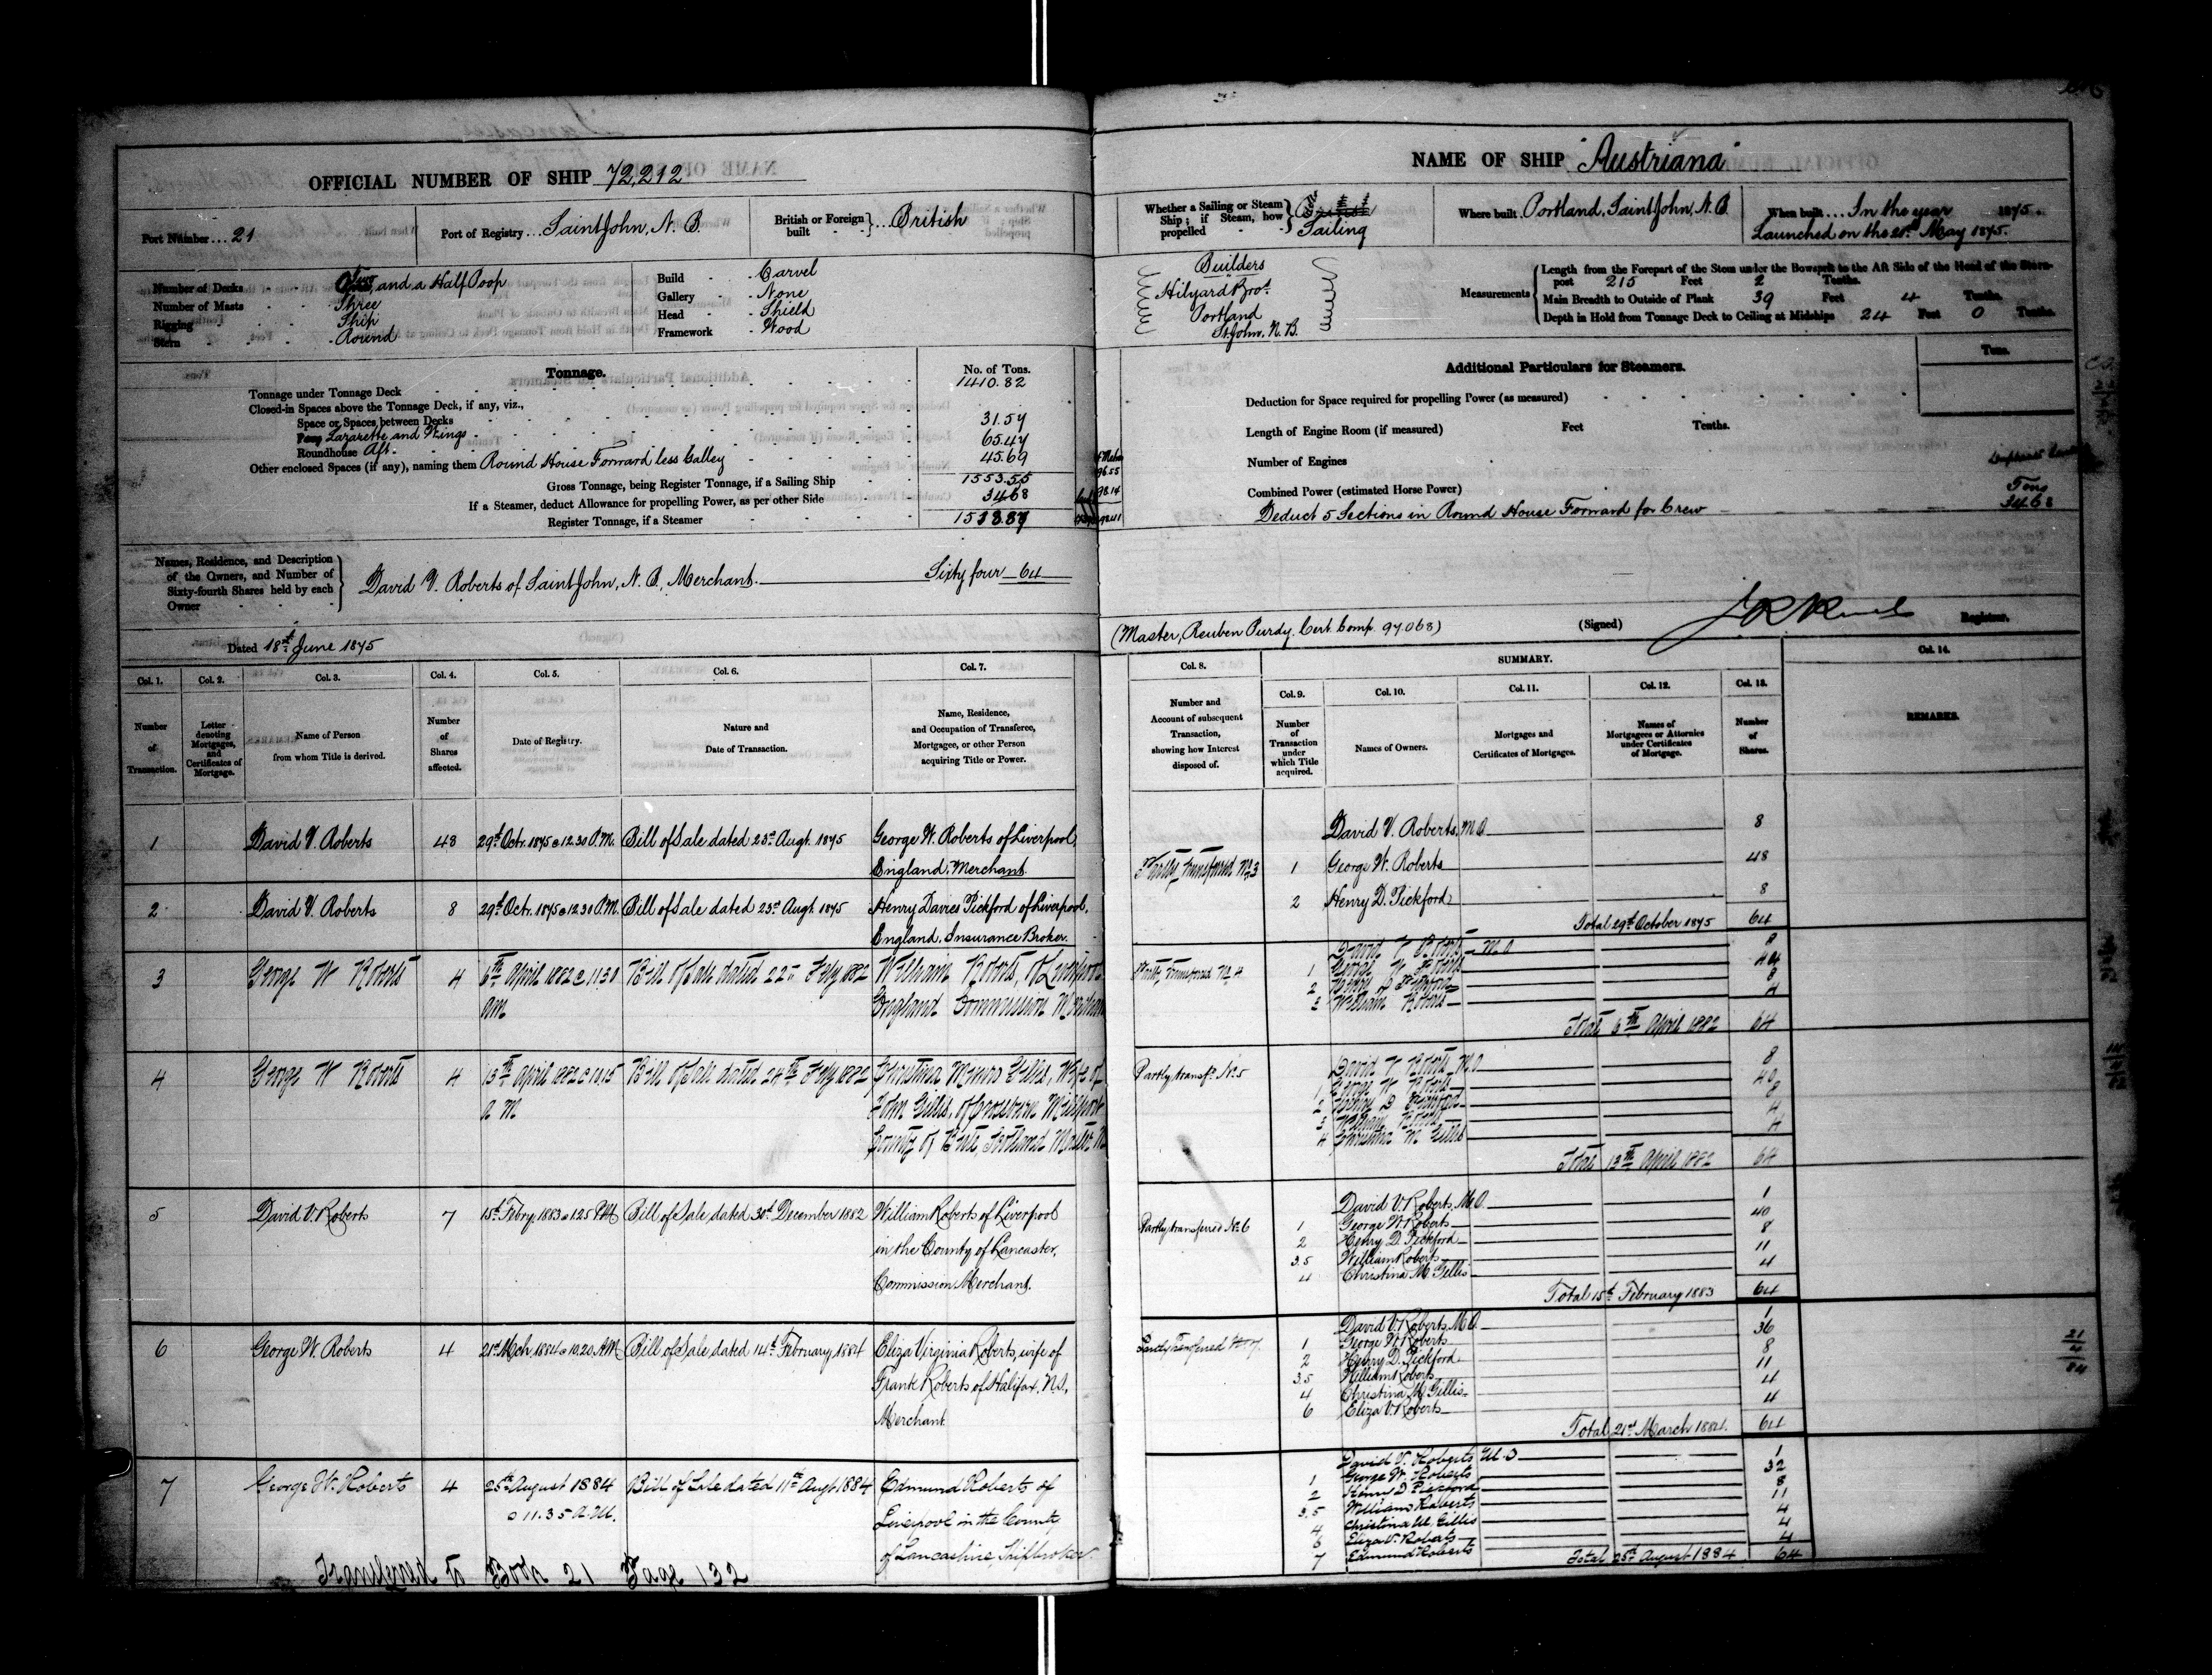 OFFICIAL NUMBER OF SHIP 72,212
Port Number 21
Port of Registry Saint John, N. B.
British or Foreign built British
Number of Decks Two and a Half Poop
Number of Masts Three
Rigging Ship
Stern Round
Build Carvel
Gallery None
Head Shield
Framework Wood
Tonnage. No. of Tons.
Tonnage under Tonnage Deck 1410.82
Closed-in Spaces above the Tonnage Deck, if any, viz.,
Space or Spaces between Decks
Poop Lazarette and Wings 31.57
Roundhouse Aft 65.47
Other enclosed Spaces (if any), naming them Round House Forward less Galley 45.69
Gross Tonnage, being Register Tonnage, if a Sailing Ship 1553.55
If a Steamer, deduct Allowance for propelling Power, as per other Side 34.68
Register Tonnage, if a Steamer 1518.87
Names, Residence, and Description of the Owners, and Number of Sixty-fourth Shares held by each Owner
David V. Roberts of Saint John, N. B, Merchant. Sixty four 64
Dated 18th June 1875
NAME OF SHIP "Austriana"
Whether a Sailing or Steam Ship; if Steam, how propelled
Sailing
Where built Portland, Saint John, N. B
When built In the year 1875.
Launched on the 21st May 1875.
Builders
Hilyard Bros.
Portland
St. John, N. B.
Measurements
Length from the Forepart of the Stem under the Bowsprit to the Aft Side of the Head of the Stern-
post 215 Feet 2 Tenths.
Main Breadth to Outside of Plank 39 Feet 4 Tenths.
Depth in Hold from Tonnage Deck to Ceiling at Midships 24 Feet 0 Tenths.
Additional Particulars for Steamers. Tons.
Deduction for Space required for propelling Power (as measured)
Length of Engine Room (if measured) Feet Tenths.
Number of Engines
Combined Power (estimated Horse Power) Tons
Deduct 5 Sections in Round House Forward for Crew 34.68
(Master, Reuben Purdy. Cert. Comp. 97.068) (Signed) Registrar.
Col. 1. Col. 2. Col. 3. Col. 4. Col. 5. Col. 6. Col. 7.
Number of Transaction.
Letter denoting Mortgages, and Certificates of Mortgage.
Name of Person from whom Title is derived.
Number of Shares affected.
Date of Registry.
Nature and Date of Transaction.
Name, Residence, and Occupation of Transferee, Mortgagee, or other Person acquiring Title or Power.
1 David V. Roberts 48 29th Octr. 1875 @ 12.30 P.M. Bill of Sale dated 23rd Augt. 1875 George W. Roberts of Liverpool,
England, Merchant
2 David V. Roberts 8 29th Octr. 1875 @ 12.30 P.M. Bill of Sale dated 23rd Augt. 1875 Henry Davies Pickford of Liverpool,
England. Insurance Broker.
3 George W Roberts 4 6th April 1882 @ 11.30 Bill of Sale dated 22nd Feby 1882 William Roberts, of Liverpool
am England Commission Merchant
4 George W Roberts 4 13th April 1882 @ 10.15 Bill of Sale dated 24th Feby 1882 Christina Munro Gillis, Wife of
a M John Gillis, of Millport
County of Bute, Scotland Master M
5 David V. Roberts 7 15th Febry. 1883 @ 1.25 PM Bill of Sale dated 30th December 1882 William Roberts of Liverpool
in the County of Lancaster,
Commission Merchant.
6 George W. Roberts 4 21st Mch. 1884 @ 10.20 A.M. Bill of Sale dated 14th February 1884 Eliza Virginia Roberts, wife of
Frank Roberts of Halifax, N.S.,
Merchant
7 George W. Roberts 4 25th August 1884 Bill of Sale dated 11th Augt 1884 Edmund Roberts of
@ 11.35 A.M. Liverpool in the County
of Lancashire, Shipbroker.
Transferred to Book 21 Page 132
Col. 8. SUMMARY. Col. 14.
Col. 9. Col. 10. Col. 11. Col. 12. Col. 13.
Number and Account of subsequent Transaction, showing how Interest disposed of.
Number of Transaction under which Title acquired.
Names of Owners.
Mortgages and Certificates of Mortgages.
Names of Mortgagees or Attornies under Certificates of Mortgage.
Number of Shares.
REMARKS.
David V. Roberts, M.O. 8
Partly transferred No. 3 1 George W. Roberts 48
2 Henry D. Pickford 8
Total 29th October 1875 64
David V Roberts M O 8
Partly transferred No 4 1 George W Roberts 44
2 Henry D Pickford 8
3 William Roberts 4
Total 6th April 1882 64
David V Roberts M O 8
Partly transfd. No. 5 1 George W Roberts 40
2 Henry D Pickford 8
3 William Roberts 4
4 Christina M Gillis 4
Total 13th April 1882 64
David V. Roberts, M.O. 1
Partly transferred No. 6 1 George W. Roberts 40
2 Henry D. Pickford 8
3.5 William Roberts 11
4 Christina M. Gillis 4
Total 15th February 1883 64
David V. Roberts, M.O. 1
Partly Transferred No 7. 1 George W. Roberts 36
2 Henry D. Pickford 8
3.5 William Roberts 11
4 Christina M. Gillis 4
6 Eliza V. Roberts 4
Total 21st March 1884. 64
David V. Roberts M.O 1
1 George W. Roberts 32
2 Henry D Pickford 8
3.5 William Roberts 11
4 Christina M. Gillis 4
6 Eliza V. Roberts 4
7 Edmund Roberts 4
Total 25th August 1884 64
21
4
84